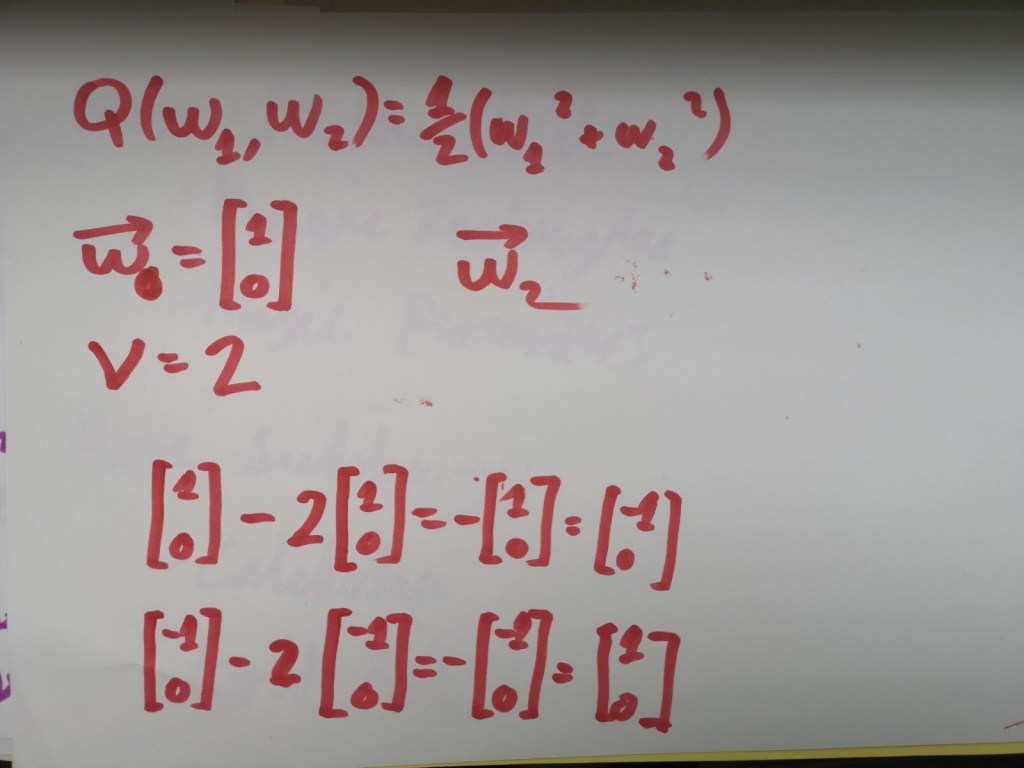 Q(w₁, w₂) = ½(w₁² + w₂²)
w⃗₀ = [1 0] w⃗₂
v = 2
[1 0] - 2[1 0] = -[1 0] = [-1 0]
[-1 0] - 2[-1 0] = -[-1 0] = [1 0]